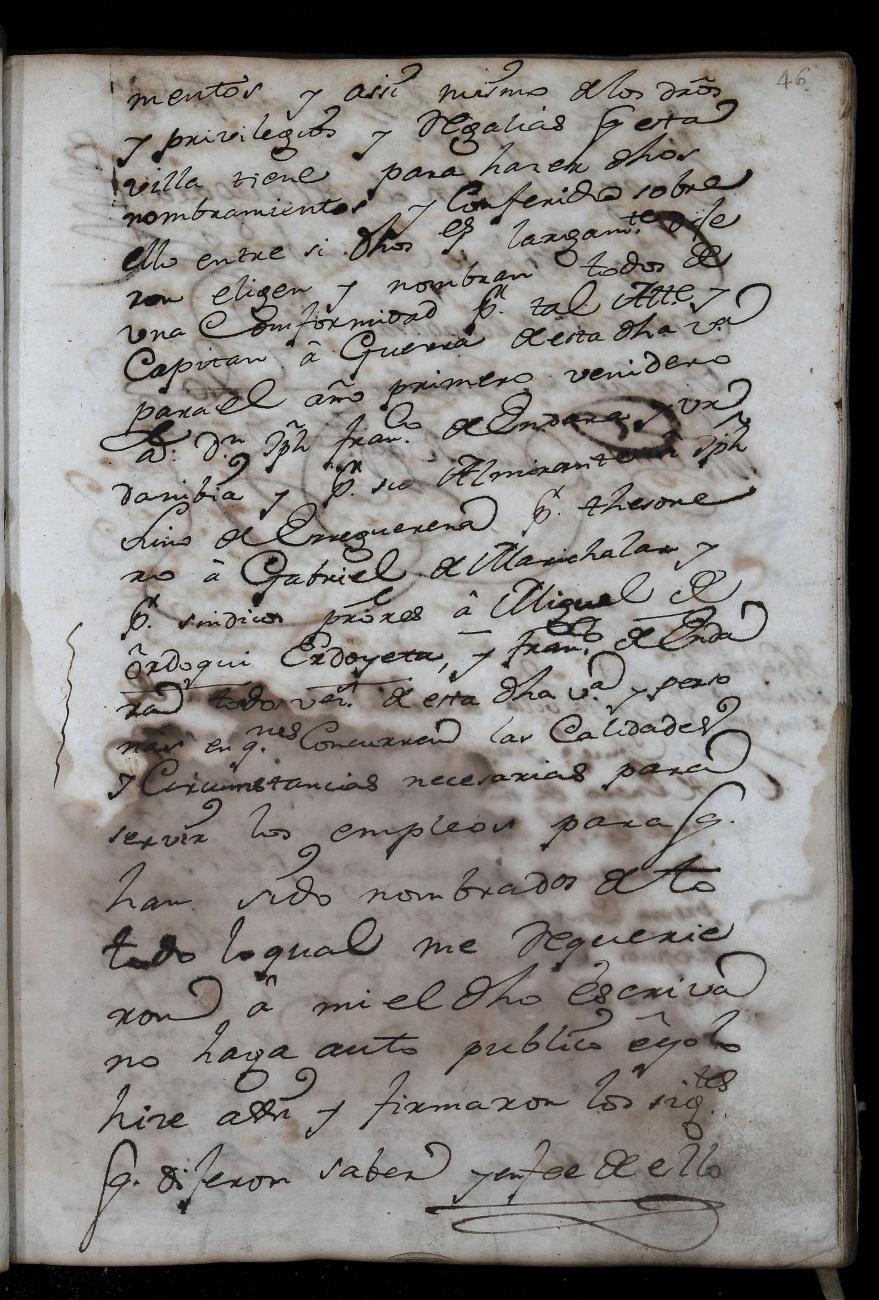 46
mentos y assi mismo de los dr̃os
y privilegios y Regalias q esta
villa tiene para hazer dhos
nombramientos y Conferido sobre
ello entre si dhos ss.es largam.te dije
ron eligen y nombran todos de
una Comformidad p.r tal Alc.e y
Capitan â Guerra de esta dha v.a
para el año primero venidero
a D.n Jph fran.co de Endara y ur
danibia y p.r su Almirante a Jph
Lino de Erreguerena p.r thesore
ro â Gabriel de Marichalar y
p.r sindicos prõres â Miguel de
ôrdoqui Erdoyeta, y fran.co de Enda
ra todos vez.s de esta dha v.a y perso
nas en q.nes Concurren las Calidades
y Circumstancias necesarias para
servir los empleos para q.
han sido nombrados de to
todo lo qual me Requerie
ron â mi el dho Escriva
no haga auto publico ê yo lo
hize assi y firmaron los sig.tes
q. dijeron saber y en fee de ello